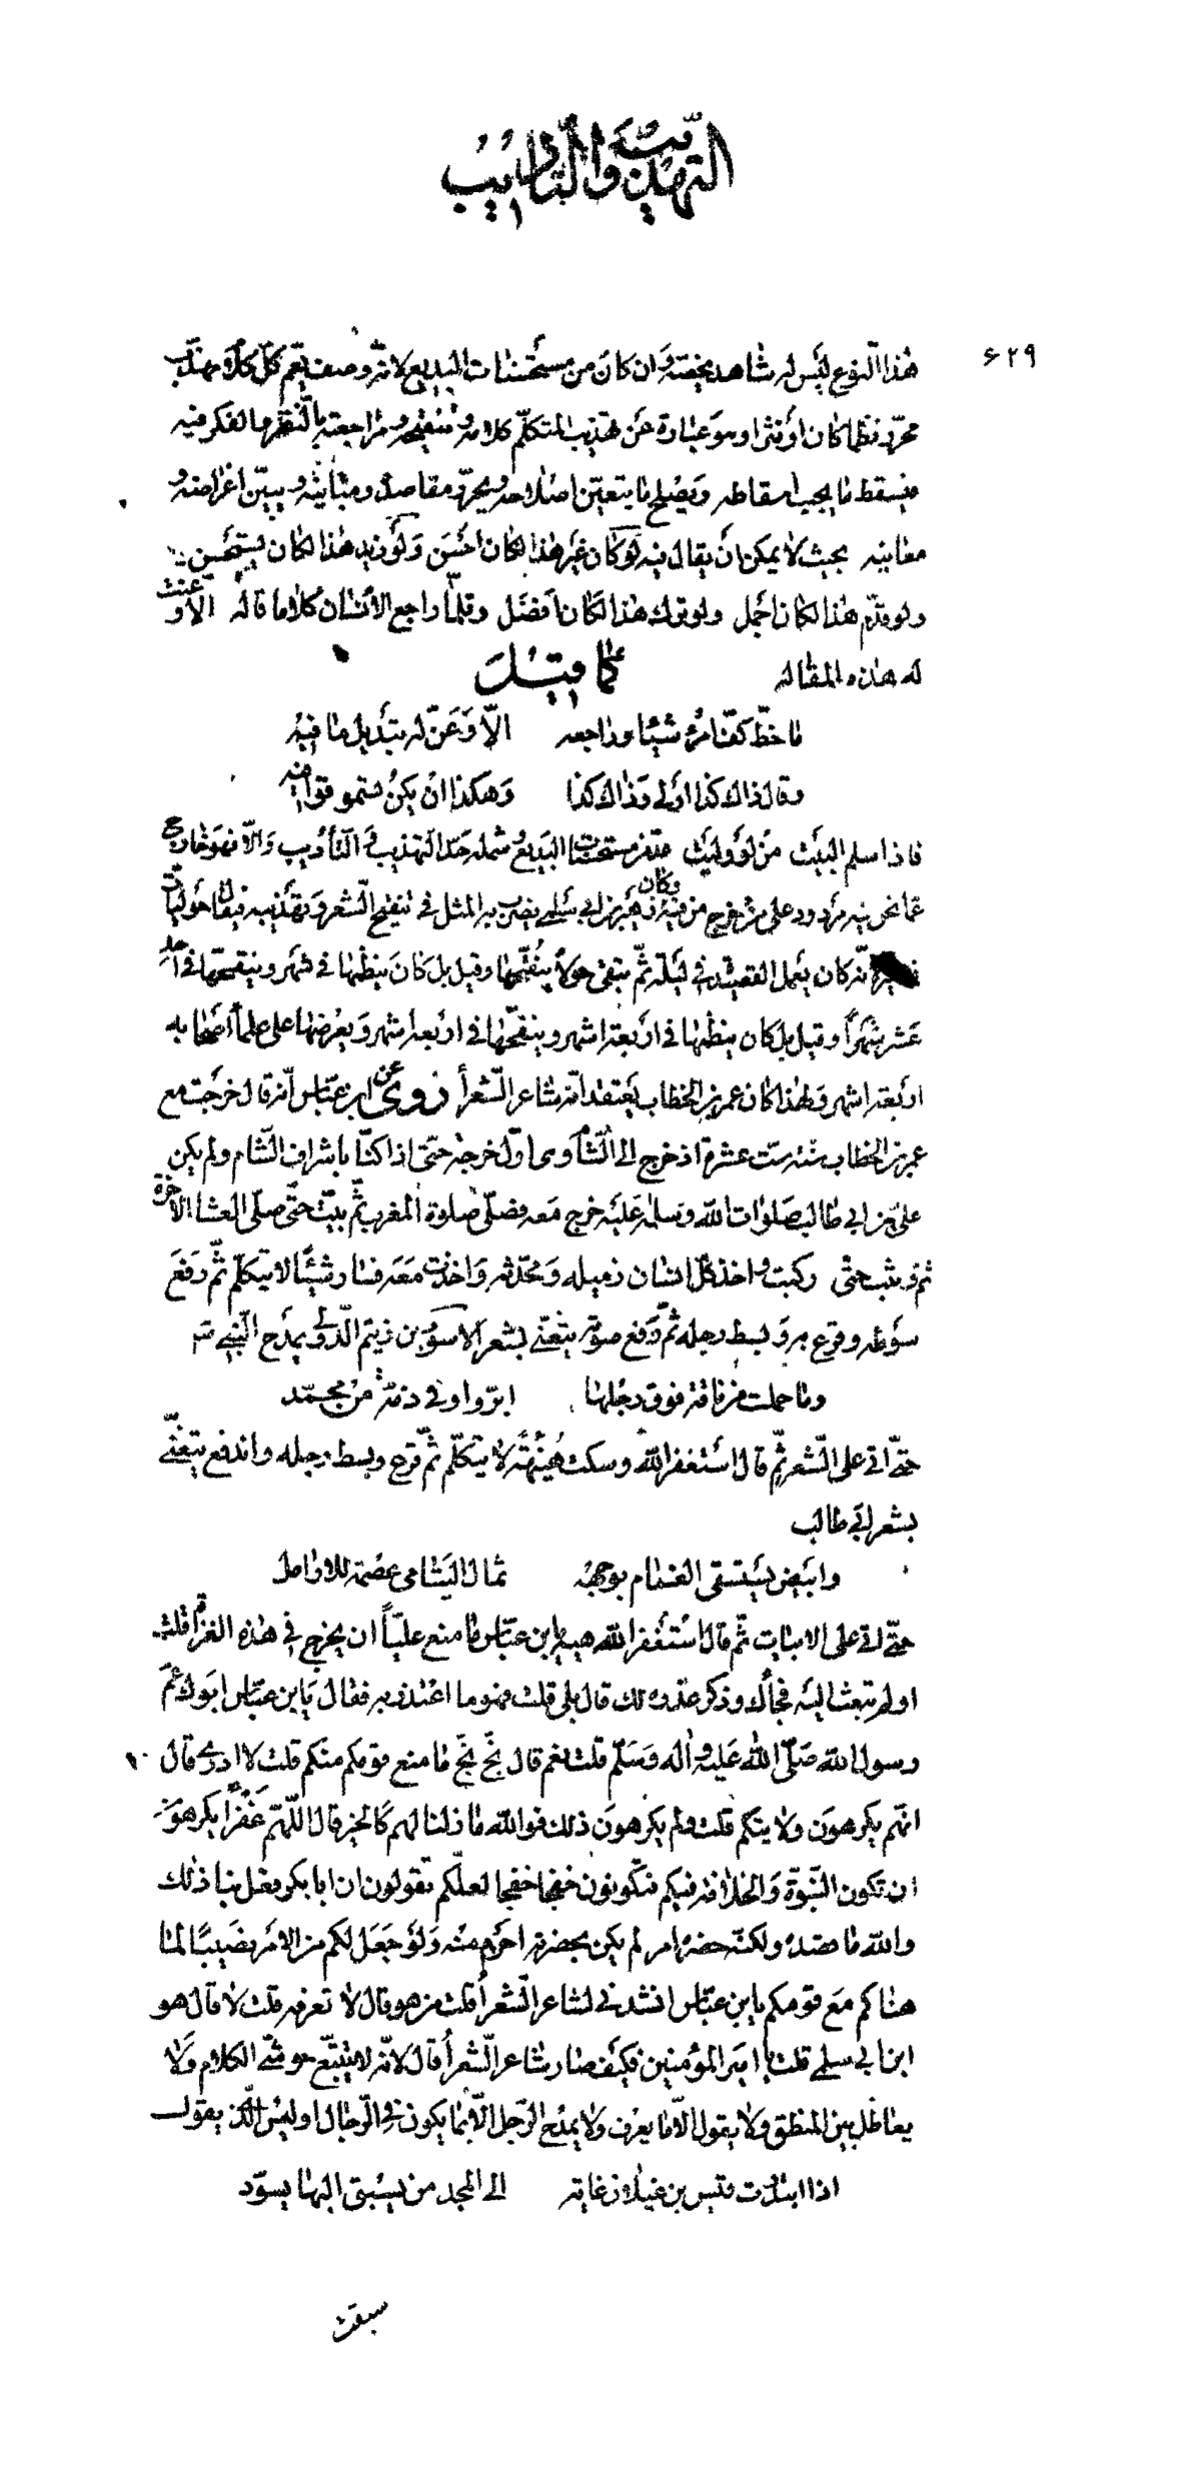 التهذيب والتأديب
٦٢٩
هذا النوع ليس له شاهد يخصّه وان كان من مستحسنات البديع لانّه وصف يعمّ كلّ كلام مهذّب
محرّر نظما كان او نثرا وهو عبارة عن تهذيب المتكلّم كلامه وتنقيحه ومراجعته بالنّظر والفكر فيه
فيسقط ما يجب اسقاطه ويصلح ما يتعيّن اصلاحه ويحرّر مقاصده ومبانيه ويبيّن اغراضه و
معانيه بحيث لا يمكن أن يقال فيه لو كان غير هذا لكان احسن ولو زيد هذا لكان يستحسن
ولو قدّم هذا لكان اجمل ولو ترك هذا لكان افضل وقلّما راجع الأنسان كلاما قاله الّا وعنّت
له هذه المقاله كما قيل
ما خطّ كفّ امرء شيئا وراجعه الّا وعنّ له تبديل ما فيه
وقال ذاك كذا اولى وذاك كذا وهكذا ان يكن تسمو قوافيه
فاذا سلم البيت من لو وليت عدّ من مستحسنات البديع وشمله حدّ التهذيب والتأديب والّا فهو خارج
عمّا نحن فيه مردود على من خرج من فيه وكان زهير بن ابي سلمى يضرب به المثل في تنقيح الشعر وتهذيبه فيقال حوليّات
زهير لانّه كان يعمل القصيدة في ليلة ثمّ يبقى حولا ينقّحها وقيل بل كان ينظمها في شهر وينقحها في احد
عشر شهراً وقيل بل كان ينظمها في اربعة اشهر وينقّحها في اربعة اشهر ويعرضها على علماء أصحابه
اربعة اشهر ولهذا كان عمر بن الخطاب يعتقد انّه شاعر الشّعرأ روى عن ابن عبّاس انّه قال خرجت مع
عمر بن الخطاب سنة ست عشرة اذ خرج الى الشّأم وهي اوّل خرجة حتّى اذا كنّا باشراف الشّام ولم يكن
علىّ بن ابي طالب صلوات اللّه وسلامه عليه خرج معه فصلّى صلوة المغرب ثمّ بيّت حتّى صلّى العشاء الآخرة
ثم قرّب حتّى ركبت واخذ كلّ انسان زميله ومحدّثه واخذت معه فسار شيئاً لا يتكلّم ثمّ رفع
سوطه وقرع به وبسط رجله ثمّ رفع صوته يتغنّى بشعر الاسود بن زنيم الدّولى يمدح النّبي ﷺ
وما حملت من ناقة فوق رحلها ابرّ واوفى ذمّة من محمّد
حتّى اتى على الشّعر ثمّ قال استغفر اللّه وسكت هنيئة لا يتكلّم ثمّ قرع وبسط رجله واندفع يتغنّى
بشعر ابى طالب
وابيض يستسقى الغمام بوجهه ثمال اليتامى عصمة للارامل
حتّى اتى على الابيات ثمّ قال استغفر اللّه هيه يا بن عبّاس ما منع عليّاً ان يخرج في هذه الغزاة قلت
اولم تبعث اليه فجأك وذكر عذره لك قال بلى قلت فهو ما اعتذر به فقال يا بن عبّاس ابوك عمّ
رسول اللّه صلّى اللّه عليه وآله وسلّم قلت نعم قال بخّ بخّ ما منع قومكم منكم قلت لا ادري قال
انّهم يكرهون ولايتكم قلت ولم يكرهون ذلك فواللّه ما زلنا لهم كالخير قال اللّهم غفراً يكرهون
ان تكون النّبوّة والخلافة فيكم فتكونون خفجا خفجا لعلّكم تقولون ان ابا بكر فعل بنا ذلك
واللّه ما قصده ولكنّه حضره امر لم يكن بحضرته احزم منه ولو جعل لكم من الامر نصيبًا لما
هناكم مع قومكم يا بن عبّاس انشدني لشاعر الشّعرأ قلت من هو قال لا تعرفه قلت لا قال هو
ابن ابي سلمى قلت يا امير المؤمنين فكيف صار شاعر الشّعرأ قال لانّه لا يتتبّع حوشي الكلام ولا
يعاظل بين المنطق ولا يقول الّا ما يعرف ولا يمدح الرّجل الّا بما يكون في الرّجال اوليس الّذى يقول
اذا ابتدرت قيس بن عيلان غاية الى المجد من يسبق اليها يسوّد
سبقت